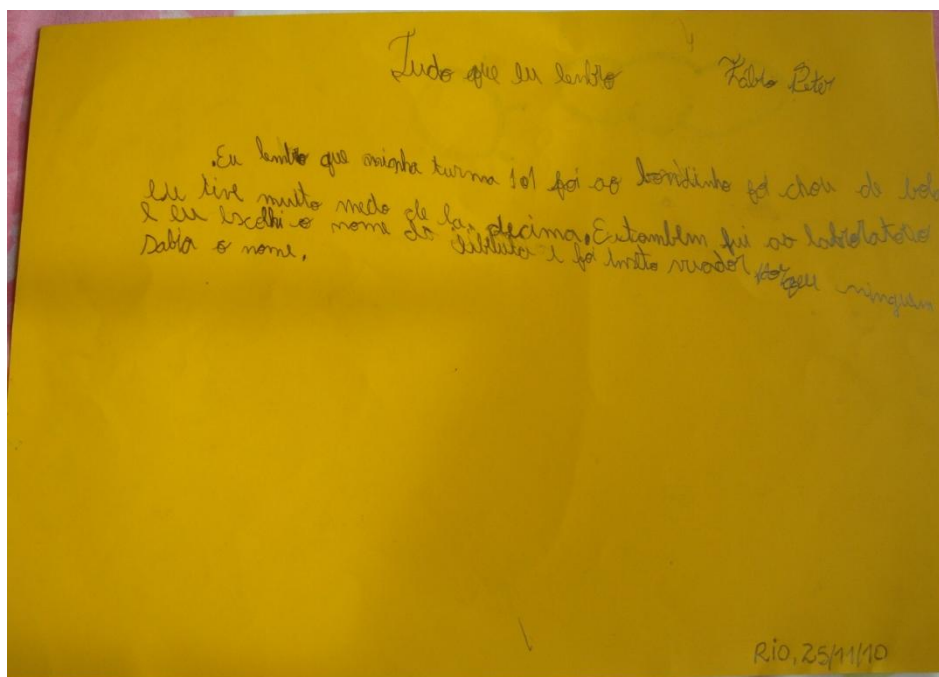 Tudo que eu lembro Fábio Peter
.Eu lembro que minha turma 101 foi ao bondinho foi chou de bola
eu tive muito medo de la decima. Eu tambem fui ao labolatorio
e eu escolhi o nome da e foi porque ninguem
sabia o nome.
Rio, 25/11/10